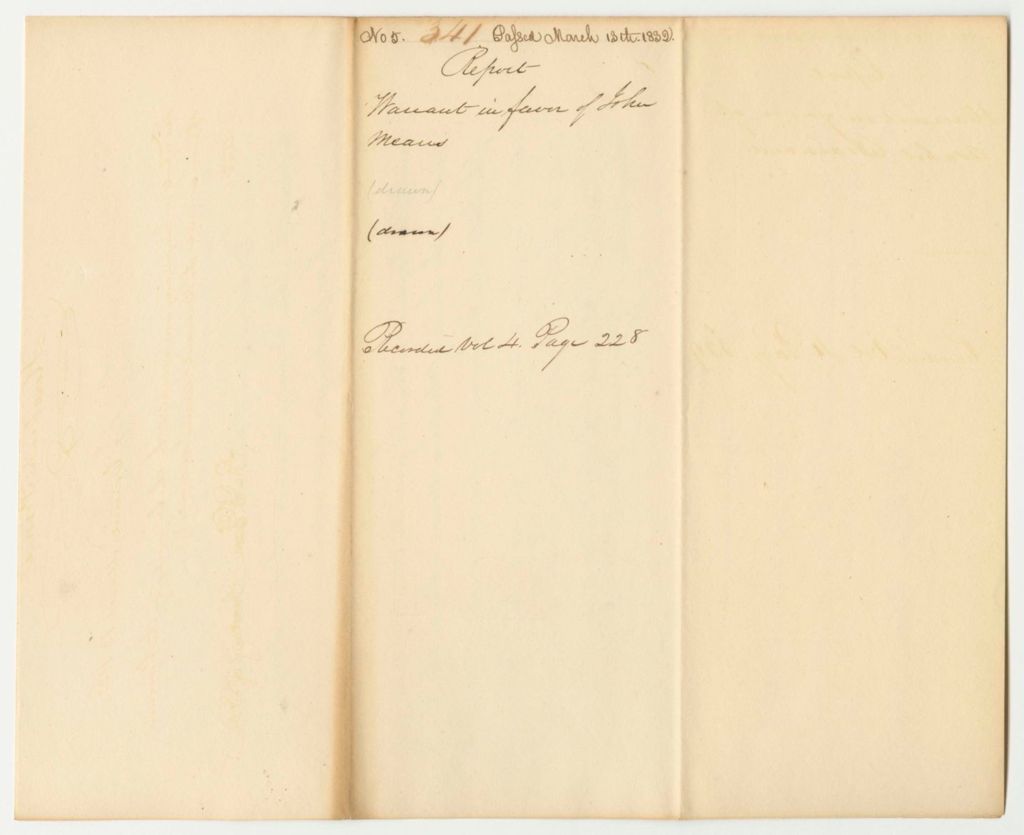 No 5. 341 Passed March 13th. 1832.
Report
Warrant in favor of John
Means
(drawn)
(drawn)
Recorded Vol 4. Page 228